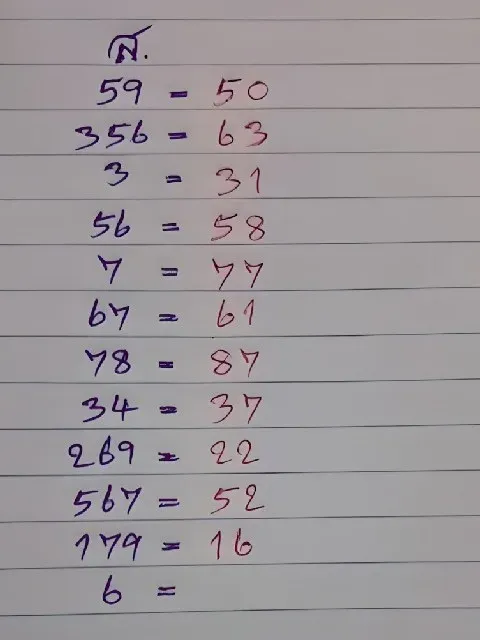 ส.
59 = 50
356 = 63
3 = 31
56 = 58
7 = 77
67 = 61
78 = 87
34 = 37
269 = 22
567 = 52
179 = 16
6 =